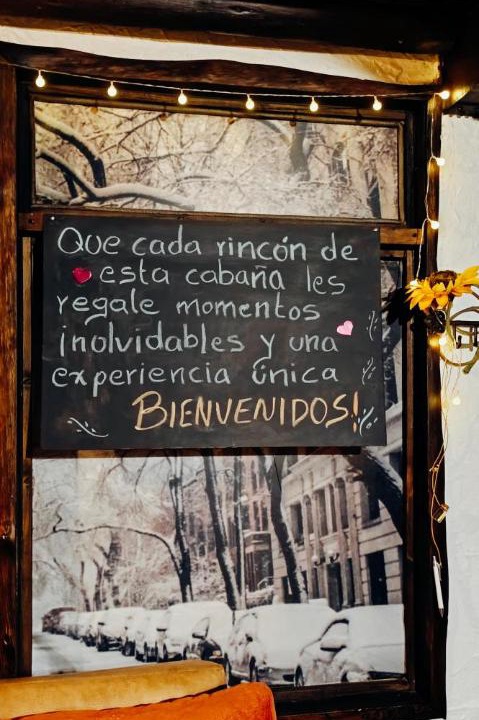 Que cada rincón de
esta cabaña les
regale momentos
inolvidables y una
experiencia única
BIENVENIDOS!